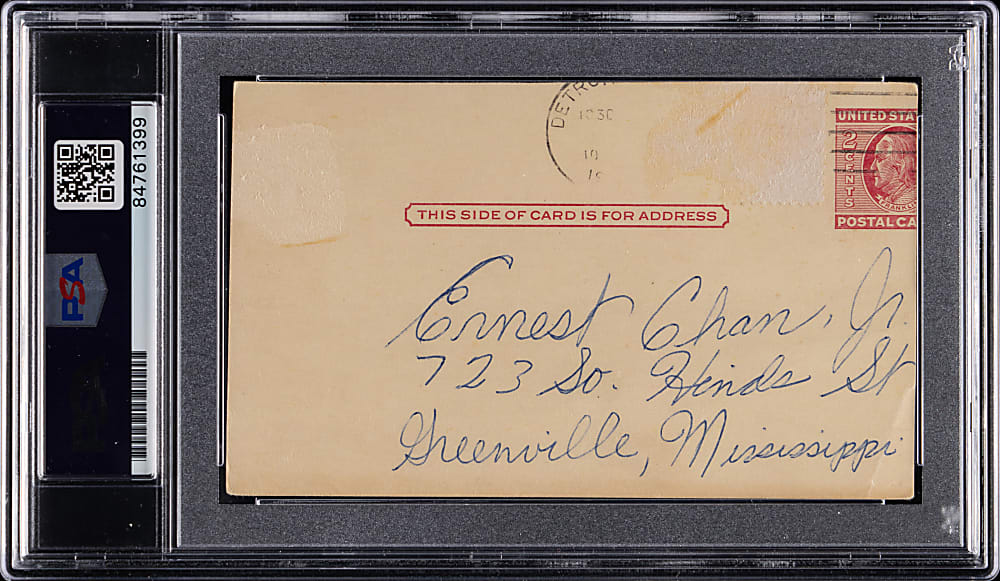 84761399
PSA
DETRO
1030
10
THIS SIDE OF CARD IS FOR ADDRESS
UNITED STA
2 CENTS
FRANKLI
POSTAL CA
Ernest Chan, Jr.
723 So. Hinds St
Greenville, Mississippi